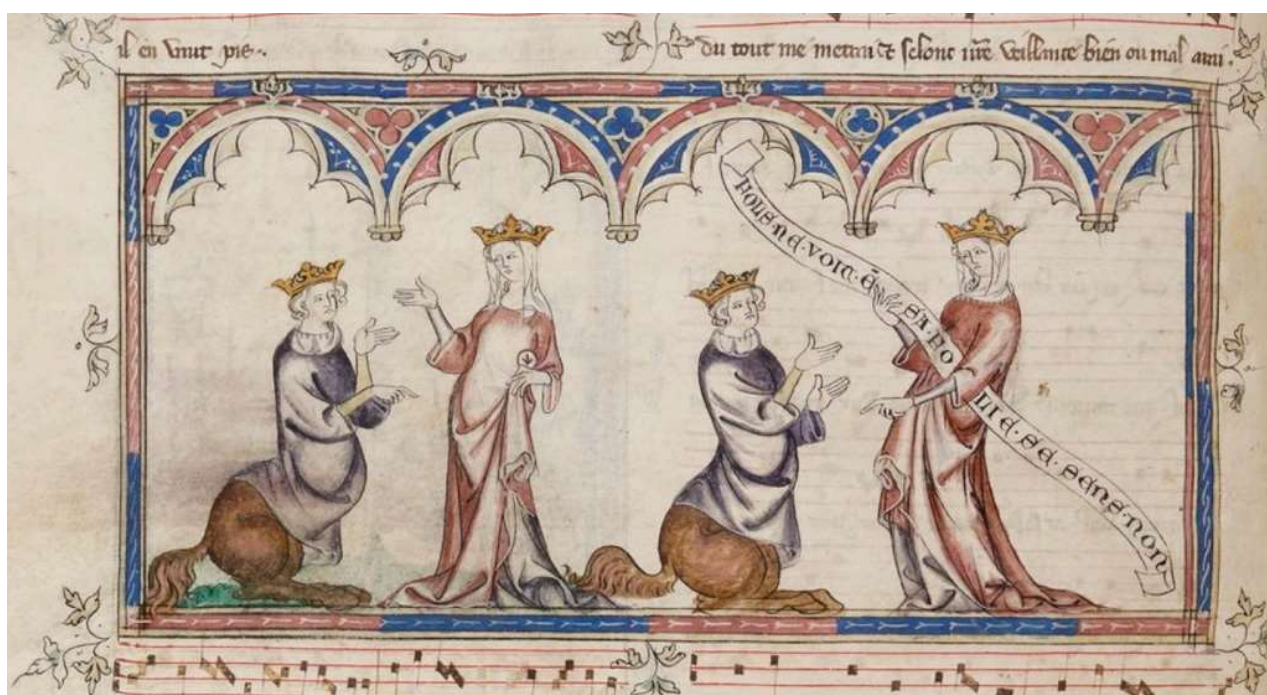 il en vaut pis.
du tout me mettrai et selonc vr̄e veillance bien ou mal aurai.
FOLS·NE·VOIT·Ē·SA·FO
LIE·SE·SENS·NON